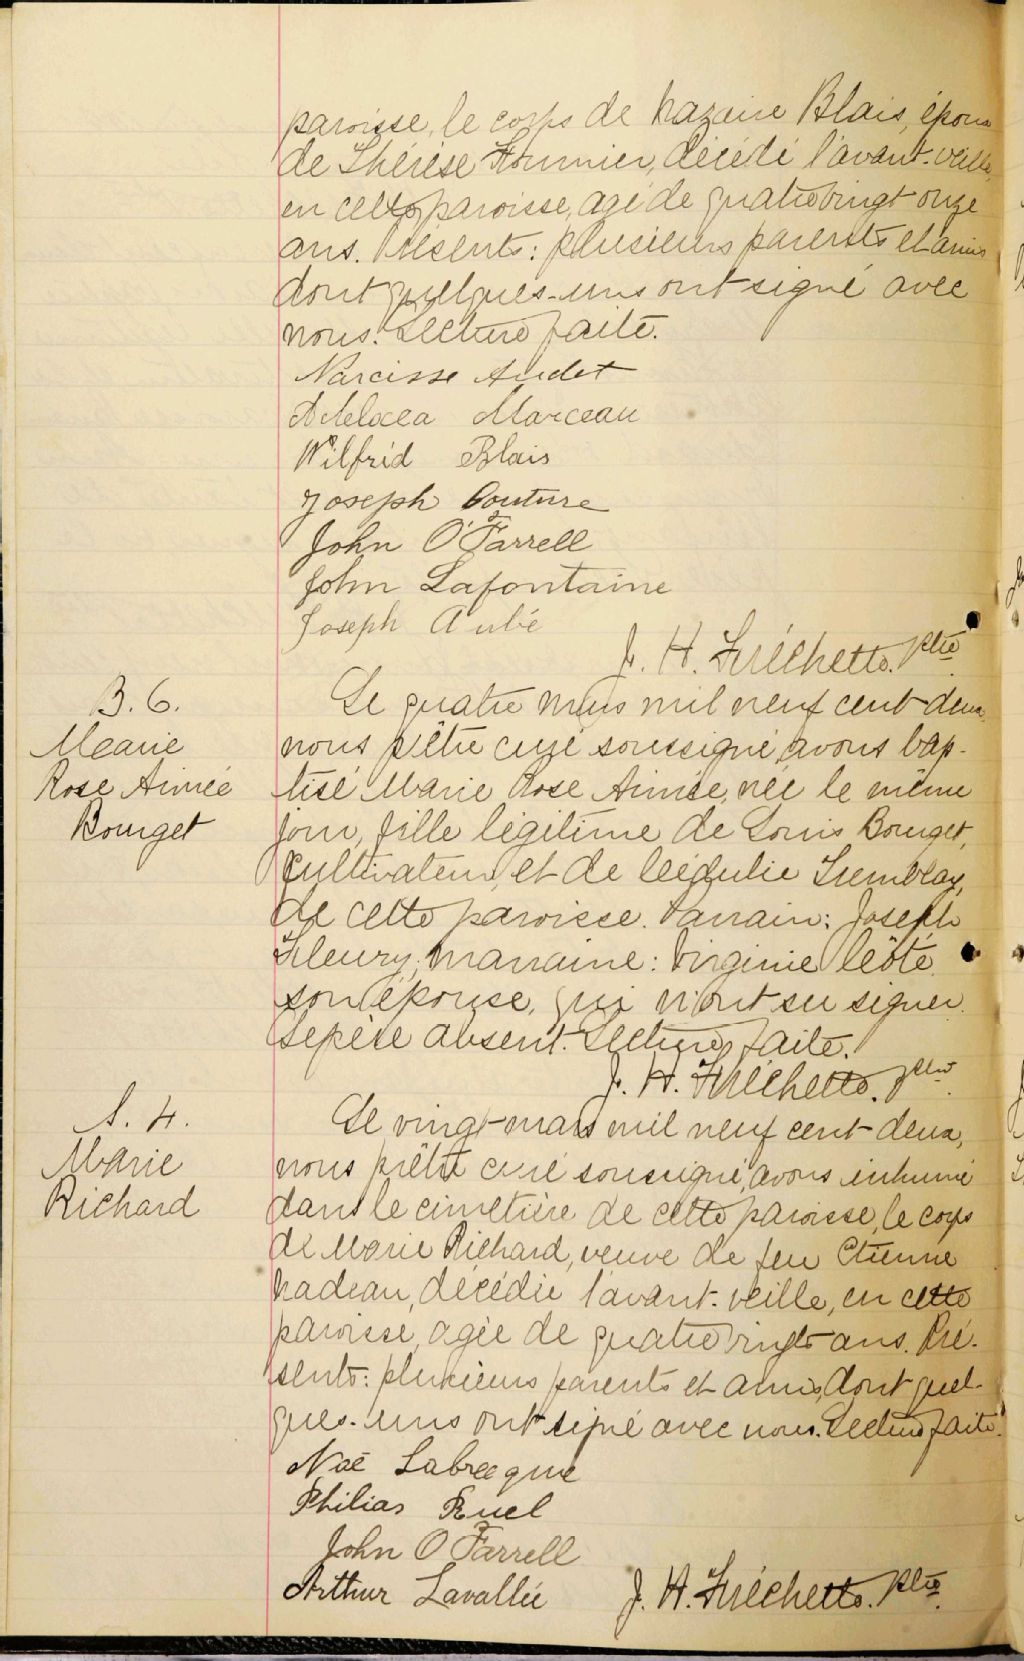 paroisse, le corps de Nazaire Blais, époux
de Thérèse Fournier, décédé l'avant-veille,
en cette paroisse, agé de quatre vingt onze
ans. Présents: plusieurs parents et amis
dont quelques-uns ont signé avec
nous. Lecture faite.
Narcisse Audet
Marceau
Wilfrid Blais
Joseph Couture
John O'Farrell
John Lafontaine
Joseph Aubé
J. H. Fréchette. Ptre
B. 6.
Marie
Rose Aimée
Bourget
Le quatre mars mil neuf cent-deux,
nous prêtre curé soussigné, avons bap-
tisé Marie Rose Aimée, née le même
jour, fille légitime de Louis Bourget,
cultivateur, et de Cédulie Tremblay,
de cette paroisse. Parrain: Joseph
Fleury; marraine: Virginie Côté
son épouse, qui n'ont su signer.
Le père absent. Lecture faite.
J. H. Fréchette. ptre
S. 4.
Marie
Richard
Le vingt mars mil neuf cent-deux,
nous prêtre curé soussigné, avons inhumé
dans le cimetière de cette paroisse, le corps
de Marie Richard, veuve de feu Etienne
Nadeau, décédée l'avant-veille, en cette
paroisse, agée de quatre vingts ans. Pré-
sents: plusieurs parents et amis, dont quel-
ques-uns ont signé avec nous. Lecture faite.
Noé Labrecque
Philias Ruel
John O'Farrell
Arthur Lavallée
J. H. Fréchette. Ptre